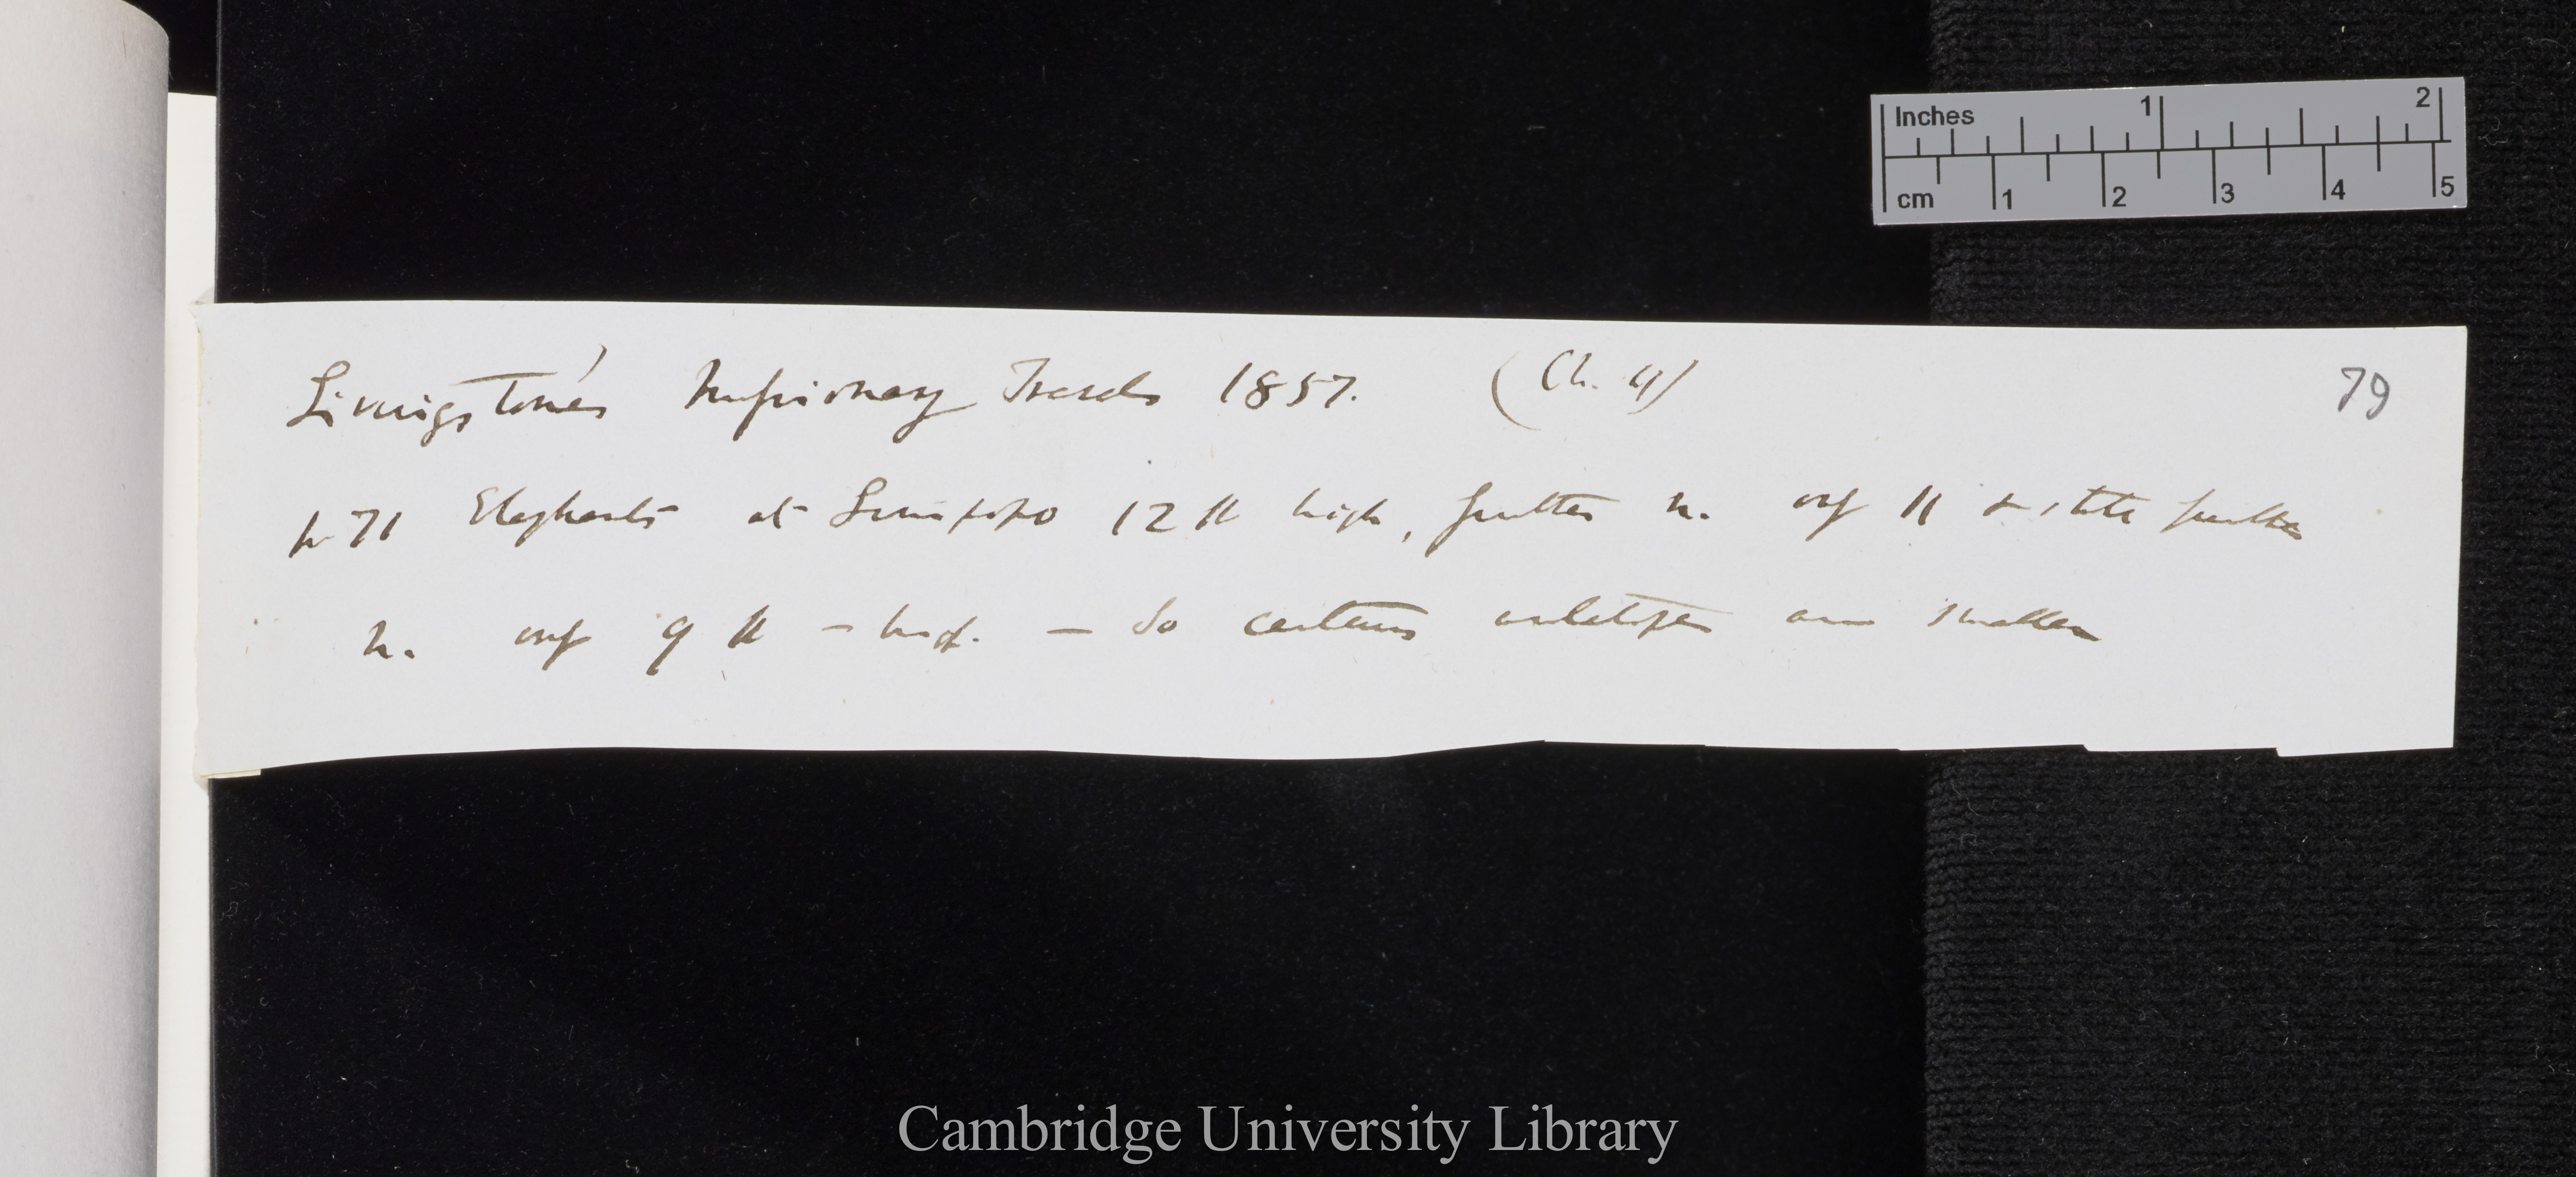 Livingstone's Missionary Travels 1857. (Ch. 4)
79
p 71 Elephants at Limpopo 12 ft high, further n. only 11 & still further
n. only 9 ft - high. — So certain antelopes are smaller
Inches 1 2
cm 1 2 3 4 5
Cambridge University Library